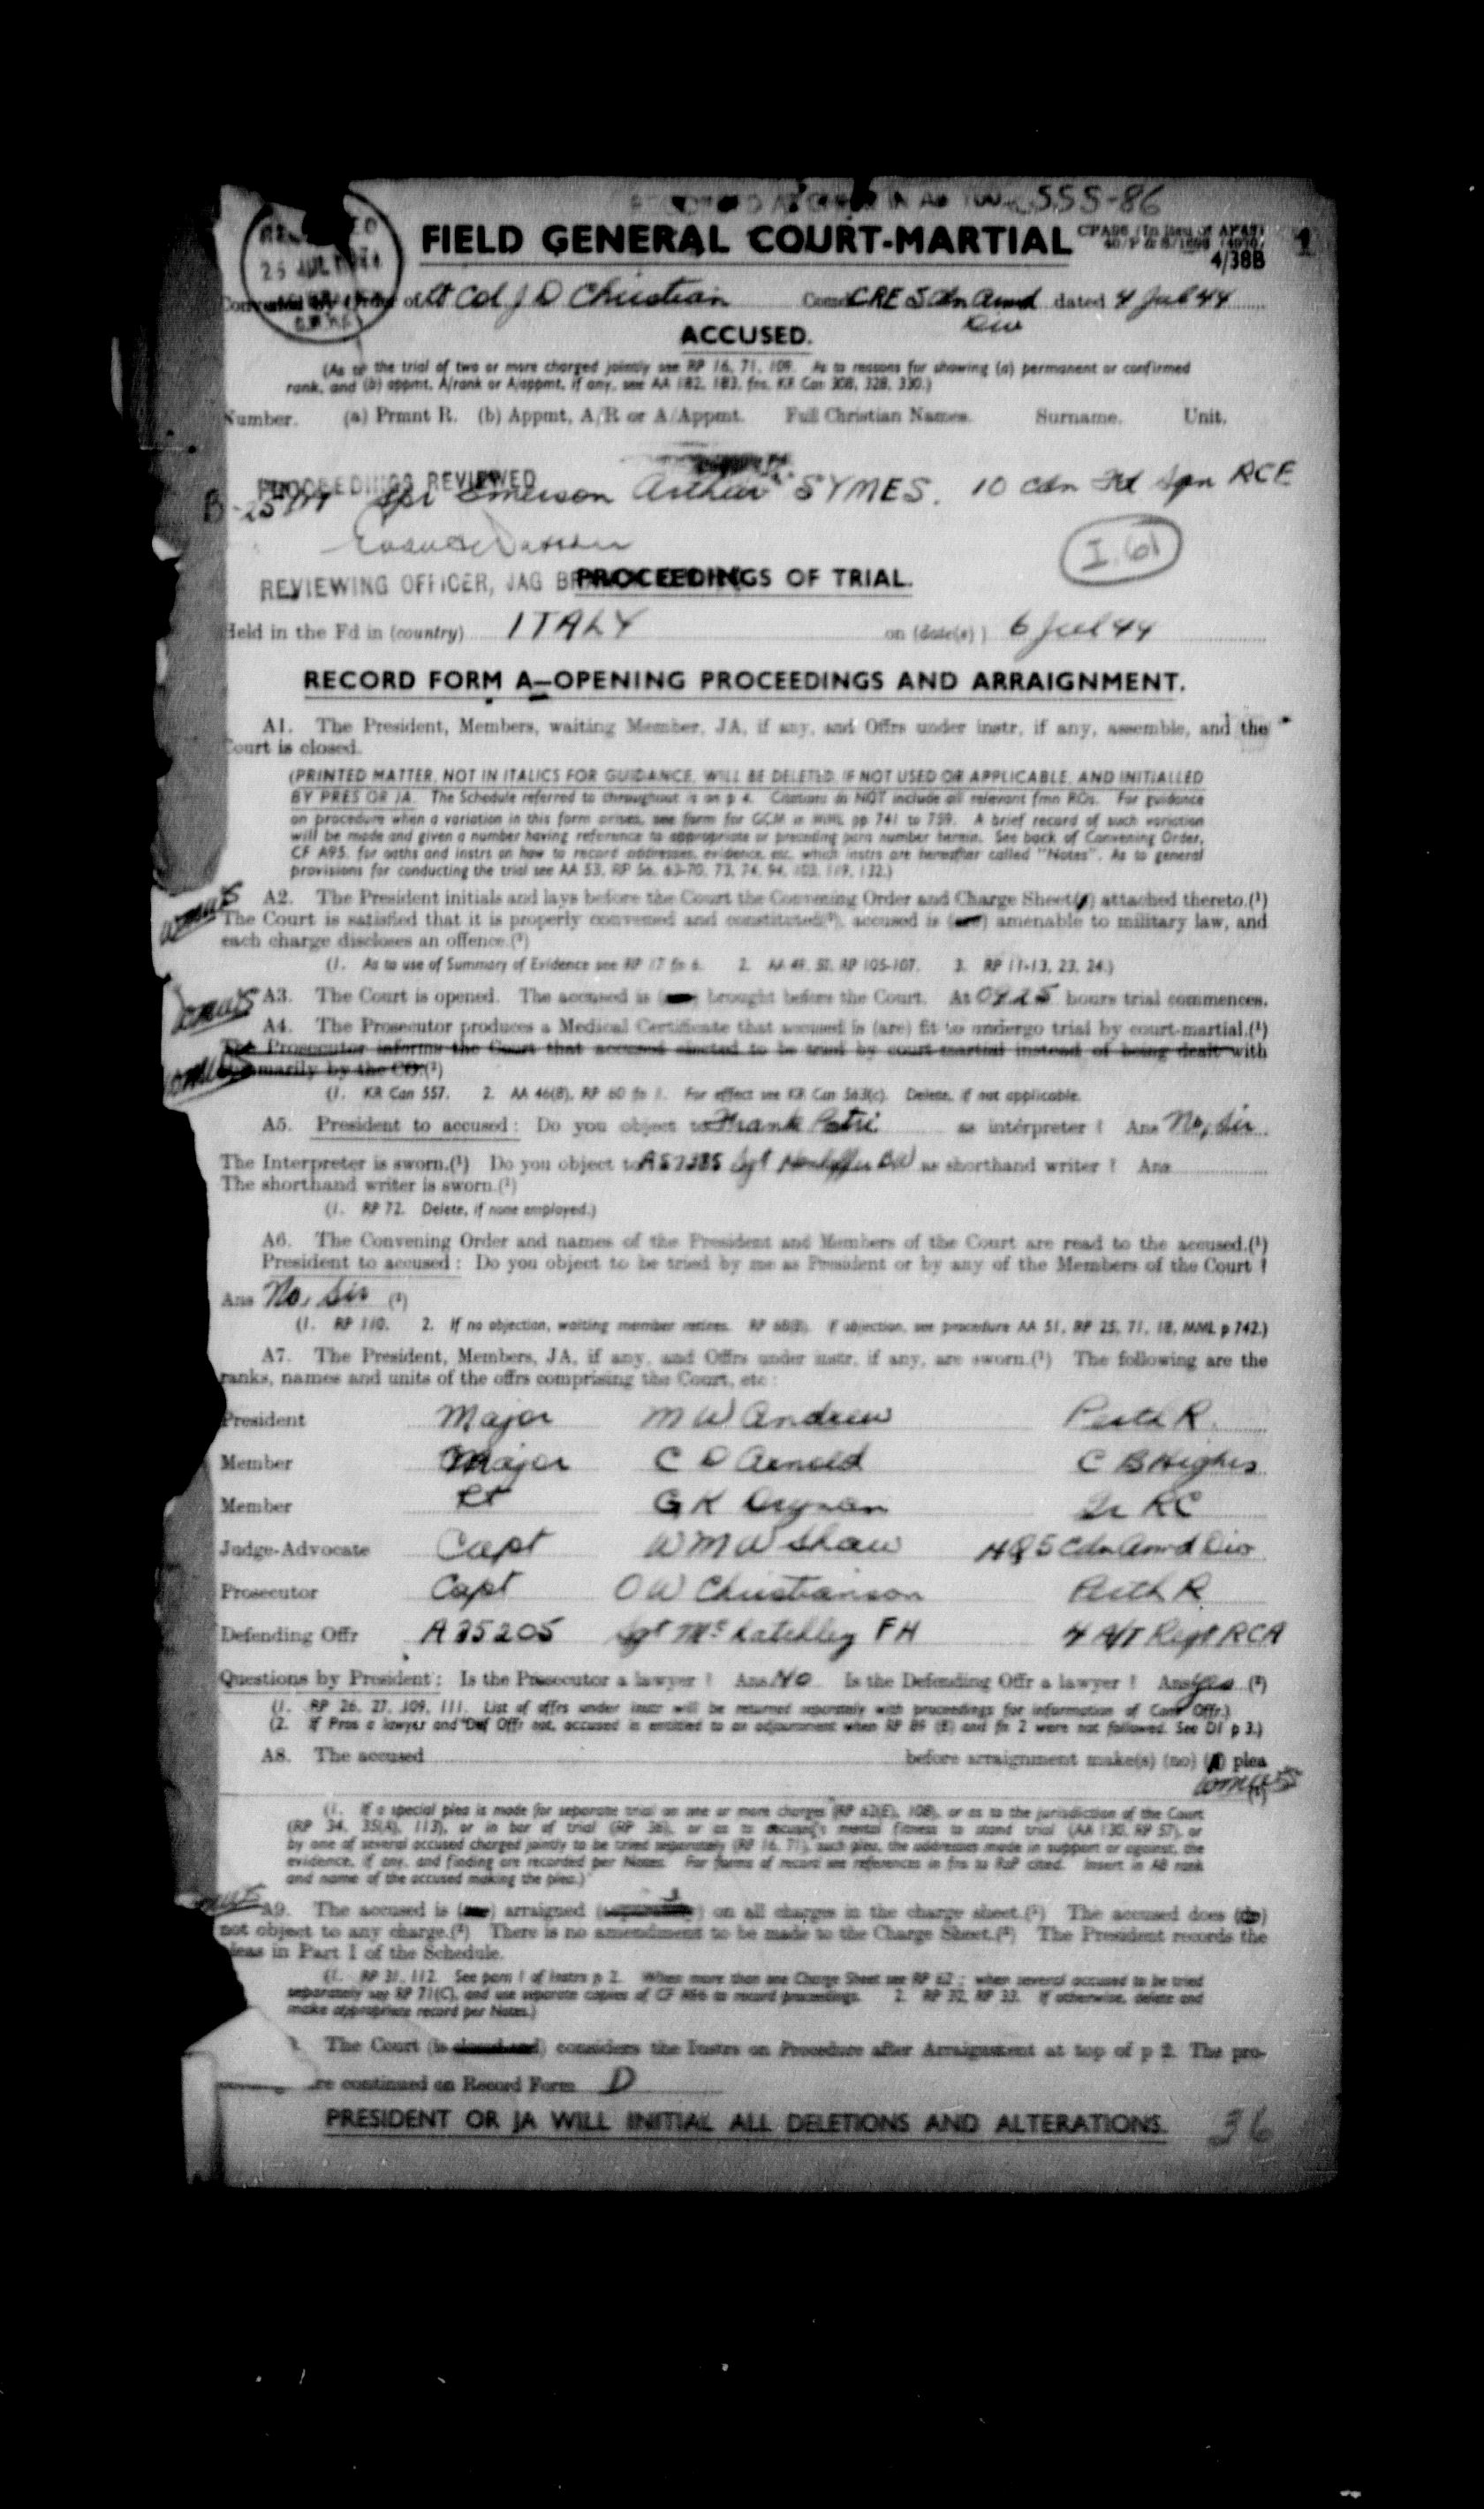 555-86
FIELD GENERAL COURT-MARTIAL
4/38B
1
25 JUL
of Lt Col J D Christian Comd CRE 5 Cdn Armd Div dated 4 Jul 44
ACCUSED.
(As to the trial of two or more charged jointly see RP 16, 71, 109. As to reasons for showing (a) permanent or confirmed
rank, and (b) appmt, A/rank or A/appmt, if any, see AA 182, 183, fns, KR Can 308, 328, 330.)
Number. (a) Prmnt R. (b) Appmt, A/R or A/Appmt. Full Christian Names. Surname. Unit.
PROCEEDINGS REVIEWED
Spr Emerson Arthur SYMES. 10 Cdn Fd Sqn RCE
I. 61
REVIEWING OFFICER, JAG
PROCEEDINGS OF TRIAL.
Held in the Fd in (country) ITALY on (date(s)) 6 Jul 44
RECORD FORM A—OPENING PROCEEDINGS AND ARRAIGNMENT.
A1. The President, Members, waiting Member, JA, if any, and Offrs under instr, if any, assemble, and the
Court is closed.
(PRINTED MATTER, NOT IN ITALICS FOR GUIDANCE, WILL BE DELETED, IF NOT USED OR APPLICABLE, AND INITIALLED
BY PRES OR JA. The Schedule referred to throughout is on p 4. Citations do NOT include all relevant fmn ROs. For guidance
on procedure when a variation in this form arises, see form for GCM in MML pp 741 to 759. A brief record of such variation
will be made and given a number having reference to appropriate or preceding para number herein. See back of Convening Order,
CF A95, for oaths and instrs on how to record addresses, evidence, etc, which instrs are hereafter called "Notes". As to general
provisions for conducting the trial see AA 53, RP 56, 63-70, 73, 74, 94, 103, 119, 132.)
A2. The President initials and lays before the Court the Convening Order and Charge Sheet(s) attached thereto.(¹)
The Court is satisfied that it is properly convened and constituted(²), accused is (are) amenable to military law, and
each charge discloses an offence.(³)
(1. As to use of Summary of Evidence see RP 17 fn 6. 2. AA 49, 50, RP 105-107. 3. RP 11-13, 23, 24.)
A3. The Court is opened. The accused is (are) brought before the Court. At 0925 hours trial commences.
A4. The Prosecutor produces a Medical Certificate that accused is (are) fit to undergo trial by court-martial.(¹)
The Prosecutor informs the Court that accused elected to be tried by court-martial instead of being dealt with
summarily by the CO.(²)
(1. KR Can 557. 2. AA 46(8), RP 60 fn 1. For effect see KR Can 563(c). Delete, if not applicable.
A5. President to accused: Do you object to Frank Petri as interpreter? Ans No, Sir
The Interpreter is sworn.(¹) Do you object to Sgt as shorthand writer? Ans
The shorthand writer is sworn.(¹)
(1. RP 72. Delete, if none employed.)
A6. The Convening Order and names of the President and Members of the Court are read to the accused.(¹)
President to accused: Do you object to be tried by me as President or by any of the Members of the Court?
Ans No, Sir (²)
(1. RP 110. 2. If no objection, waiting member retires. RP 68(B). If objection, see procedure AA 51, RP 25, 71, 18, MML p 742.)
A7. The President, Members, JA, if any, and Offrs under instr, if any, are sworn.(¹) The following are the
ranks, names and units of the offrs comprising the Court, etc:
President Major M W Andrew Perth R.
Member Major C D Arnold C B Highrs
Member Lt G K Ir RC
Judge-Advocate Capt W M W Shaw HQ 5 Cdn Armd Div
Prosecutor Capt O W Christianson Perth R
Defending Offr A 35205 Sgt FH 4 A/T Regt RCA
Questions by President: Is the Prosecutor a lawyer? Ans No Is the Defending Offr a lawyer? Ans yes (²)
(1. RP 26, 27, 109, 111. List of offrs under instr will be returned separately with proceedings for information of Conv Offr.)
(2. If Pros a lawyer and Def Offr not, accused is entitled to an adjournment when RP 89 (B) and fn 2 were not followed. See D1 p 3.)
A8. The accused before arraignment make(s) (no) (a) plea
(1. If a special plea is made for separate trial on one or more charges (RP 62(E), 108), or as to the jurisdiction of the Court
(RP 34, 35(A), 113), or in bar of trial (RP 36), or as to accused's mental fitness to stand trial (AA 130, RP 57), or
by one of several accused charged jointly to be tried separately (RP 16, 71), such plea, the addresses made in support or against, the
evidence, if any, and finding are recorded per Notes. For forms of record see references in fns to RsP cited. Insert in A8 rank
and name of the accused making the plea.)
A9. The accused is (are) arraigned (separately) on all charges in the charge sheet.(¹) The accused does (do)
not object to any charge.(²) There is no amendment to be made to the Charge Sheet.(²) The President records the
pleas in Part I of the Schedule.
(1. RP 31, 112. See para 1 of Instrs p 2. When more than one Charge Sheet see RP 62; when several accused to be tried
separately see RP 71(C), and use separate copies of CF A96 to record proceedings. 2. RP 32, RP 33. If otherwise, delete and
make appropriate record per Notes.)
The Court (is closed and) considers the Instrs on Procedure after Arraignment at top of p 2. The pro-
are continued on Record Form D
PRESIDENT OR JA WILL INITIAL ALL DELETIONS AND ALTERATIONS.
36